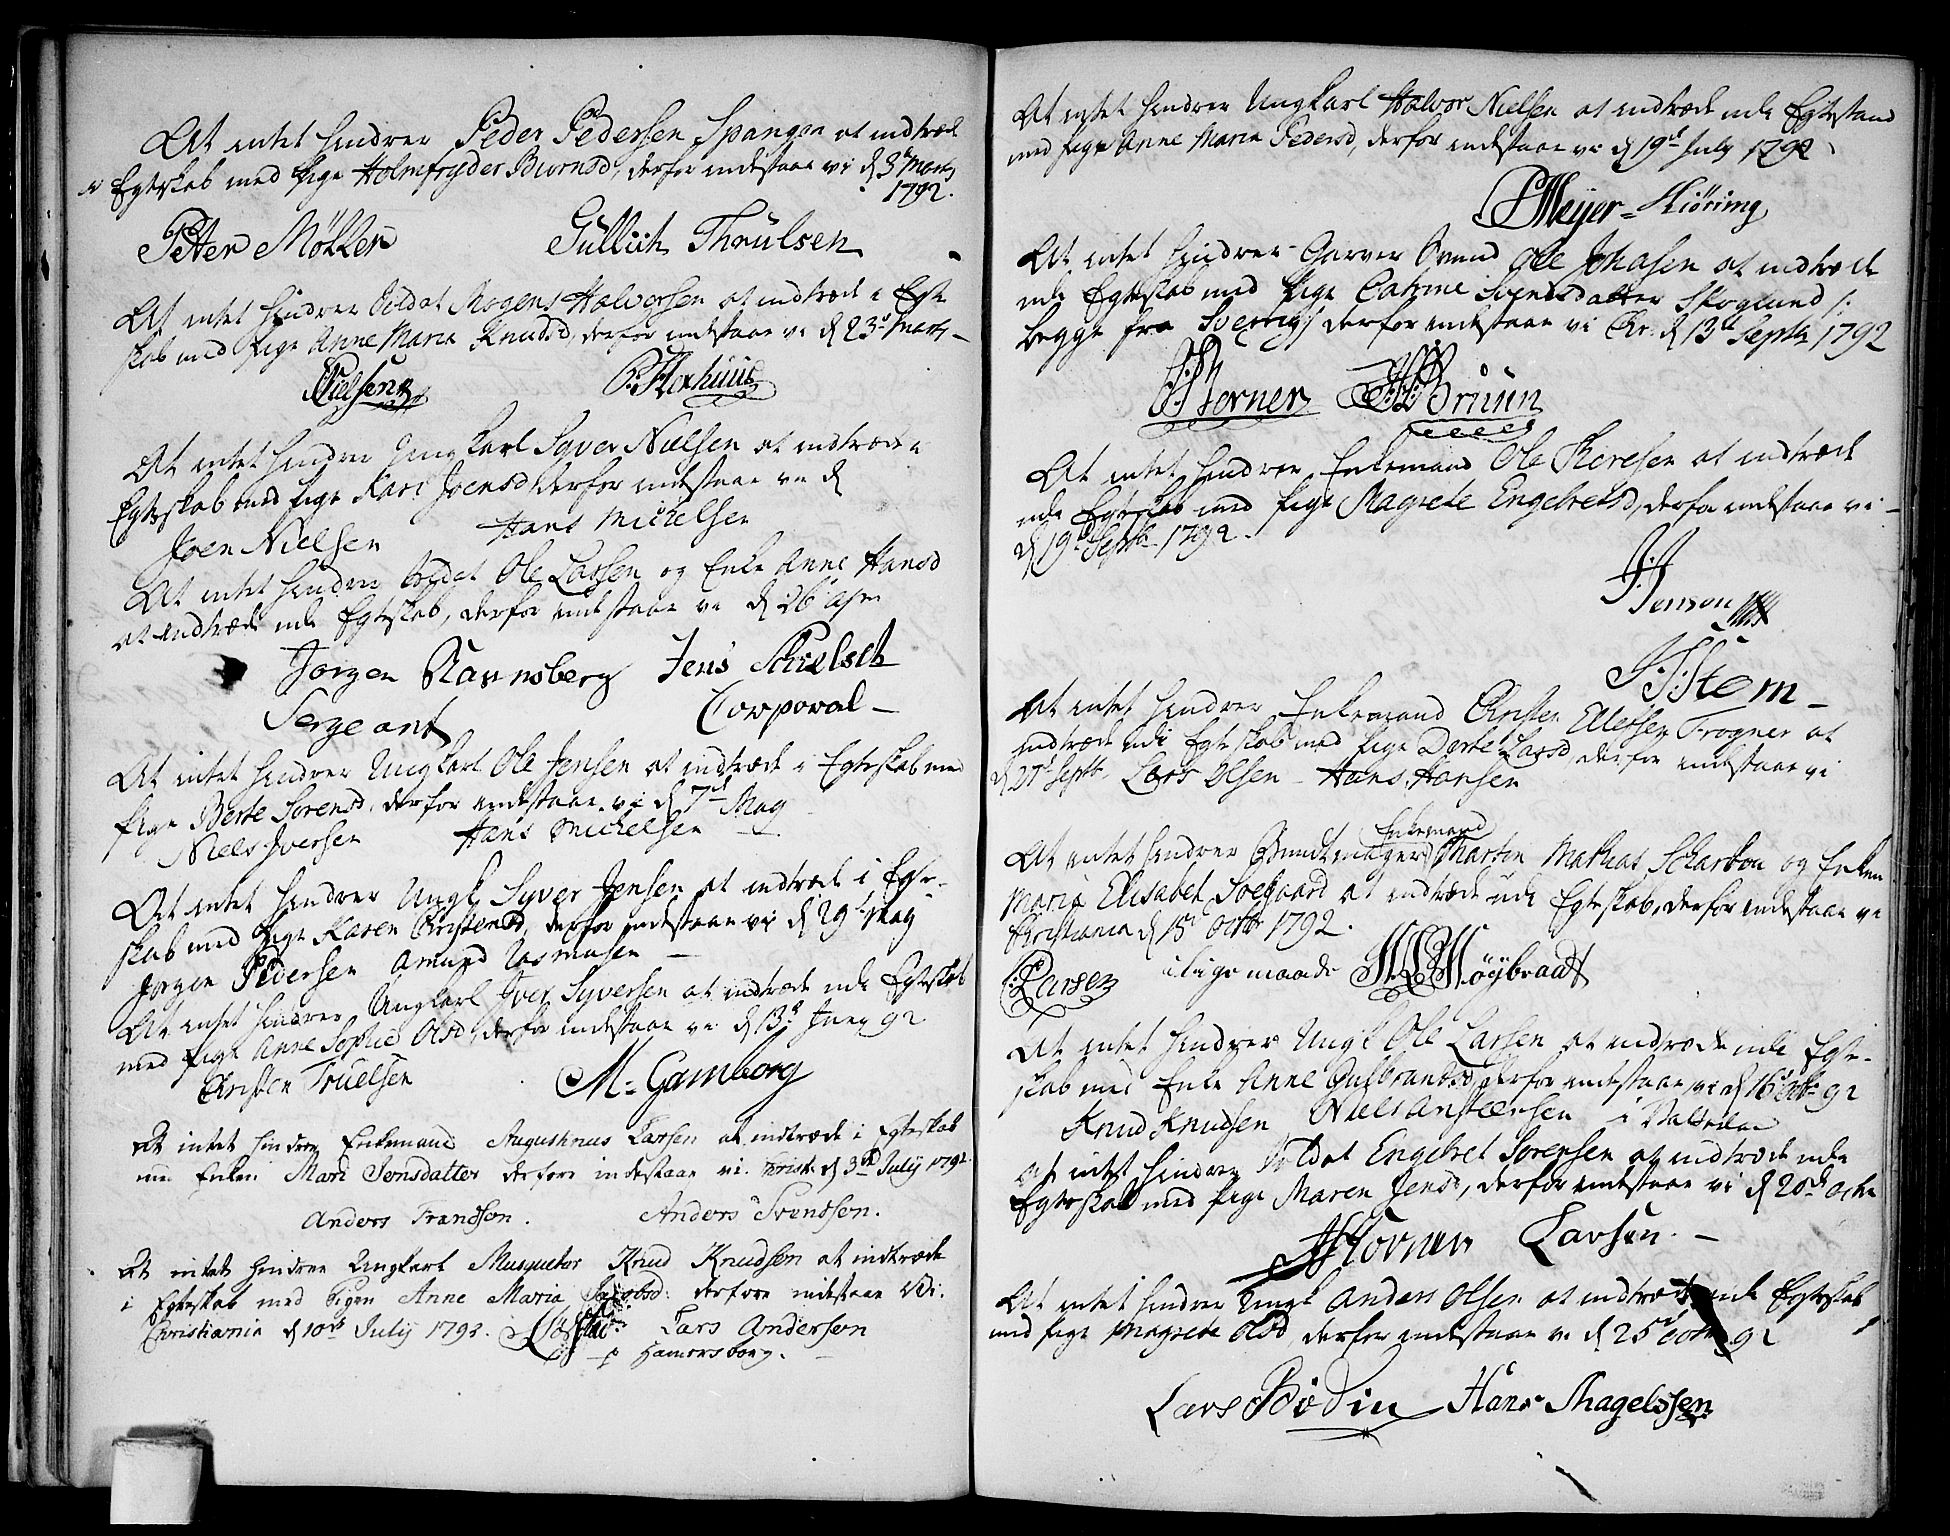 At intet hindrer Peder Pedersen Spangen at indtræde
i Egteskab med Pige Holmfryder Biørnsd, derfor indestaae vi d 3d Marty
1792.
Peter Møller Gullich Thrulsen
At intet hindrer Soldat Mogens Halvorsen at indtræde i Egte
skab med Pige Anne Maria Knudsd, derfor indestaae vi d 23d Marty
Nielsen
At intet hindrer Ungkarl Syver Nielsen at indtræde i
Egteskab med Pige Kari Joensd derfor indestaae vi d
Joen Nielsen Hans Michelsen
At intet hindrer Soldat Ole Larsen og Enke Anne Hansd
at indtræde udi Egteskab, derfor indestaae vi d 26d Apr
Jørgen Ravnsberg Jens
Sergeant Corporal
At intet hindrer Ungkarl Ole Jensen at indtræde i Egteskab med
Pige Berte Sørensd, derfor indestaae vi d 7d May
Niels Iversen Hans Michelsen
At intet hindrer Ungk Syver Jensen at indtræde i Egte-
skab med Pige Karen Christensd, derfor indestaae vi d 29d May
Jørgen Pedersen Amund Rasmusen
At intet hindrer Ungkarl Iver Syversen at indtræde udi Egteskab
med Pige Anne Sophie Olsd, derfor indestaae vi d 13d Juny 92
Christen Truelsen M. Gamborg
At intet hindrer Enkemand Augustinus Larsen at indtræde i Egteskab
med Enken Mari Jonsdatter derfore indestaae vi. Christ: d 3die July 1792.
Anders Trandsøn. Anders Svendsøn.
At intet hindrer Ungkarl Musqueter Knud Knudsøn at indtræde
i Egteskab med Pigen Anne Maria Jacobsd: derfore indestaae Vi.
Christiania d 10de July 1792. Lars Andersøn
p Hamersborg.
At intet hindrer Ungkarl Halvor Nielsen at indtræde udi Egtestand
med Pige Anne Maria Pedersd, derfor indestaae vi d 19d July 1792
P Meyer Kiøring
At intet hindrer Garver Svend Ole Johasen at indtræde
udi Egteskab med Pige Catrine Svendsdatter Skoglund /:
begge fra Sverrig :/ derfor indestaae vi Chr: d 13d Septbr 1792
Horner Bruun
At intet hindrer Enkemand Ole Thoresen at indtræde
udi Egteskab med Pige Magrete Engebretsd, derfor indestaae vi
d 19d Septbr 1792.
J: Jenson
Stem
At intet hindrer Enkemand Christen Ellefsen Frogner at
indtræde udi Egteskab med Pige Dorte Larsd, derfor indestaae vi
d 27d Septbr Lars Olsen Hans Hansen
Enkemand
At intet hindrer Bundtmager Martin Mathias Scharbou og Enken
Maria Elisabet Soelgaard at indtræde udi Egteskab, derfor indestaae vi
Christiania d 15d Octbr 1792.
Larsen i lige maade Høybraadt
At intet hindrer Ungk Ole Larsen at indtræde udi Egte-
skab med Enke Anne Gulbrandsd, derfor indestaae vi d 16 Octbr 92
Knud Knudsen Niels Anstensen i
At intet hindrer Soldat Engebret Sørensen at indtræde udi
Egteskab med Pige Maren Jensd, derfor indestaae vi d 20d Octbr
Horner Larsen.
At intet hindrer Ungk Anders Olsen at indtræde udi Egteskab
med Pige Magrete Olsd, derfor indestaae vi d 25d Octbr 92
Lars Bodin Hans Thagelssen